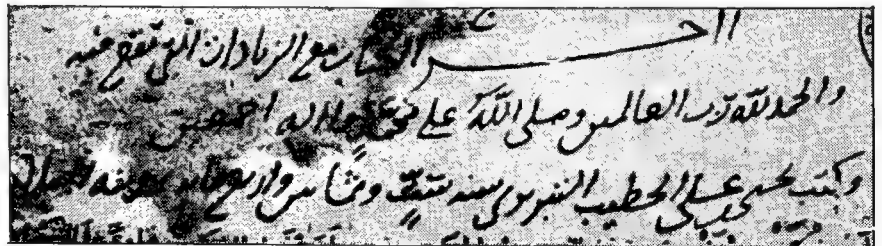 آخر الكتاب مع الزيادات التي تقع فيه
والحمد لله رب العالمين وصلى الله على محمد واله اجمعين
وكتب يحيى بن علي الخطيب التبريزي سنة ست وثمانين واربع مائة